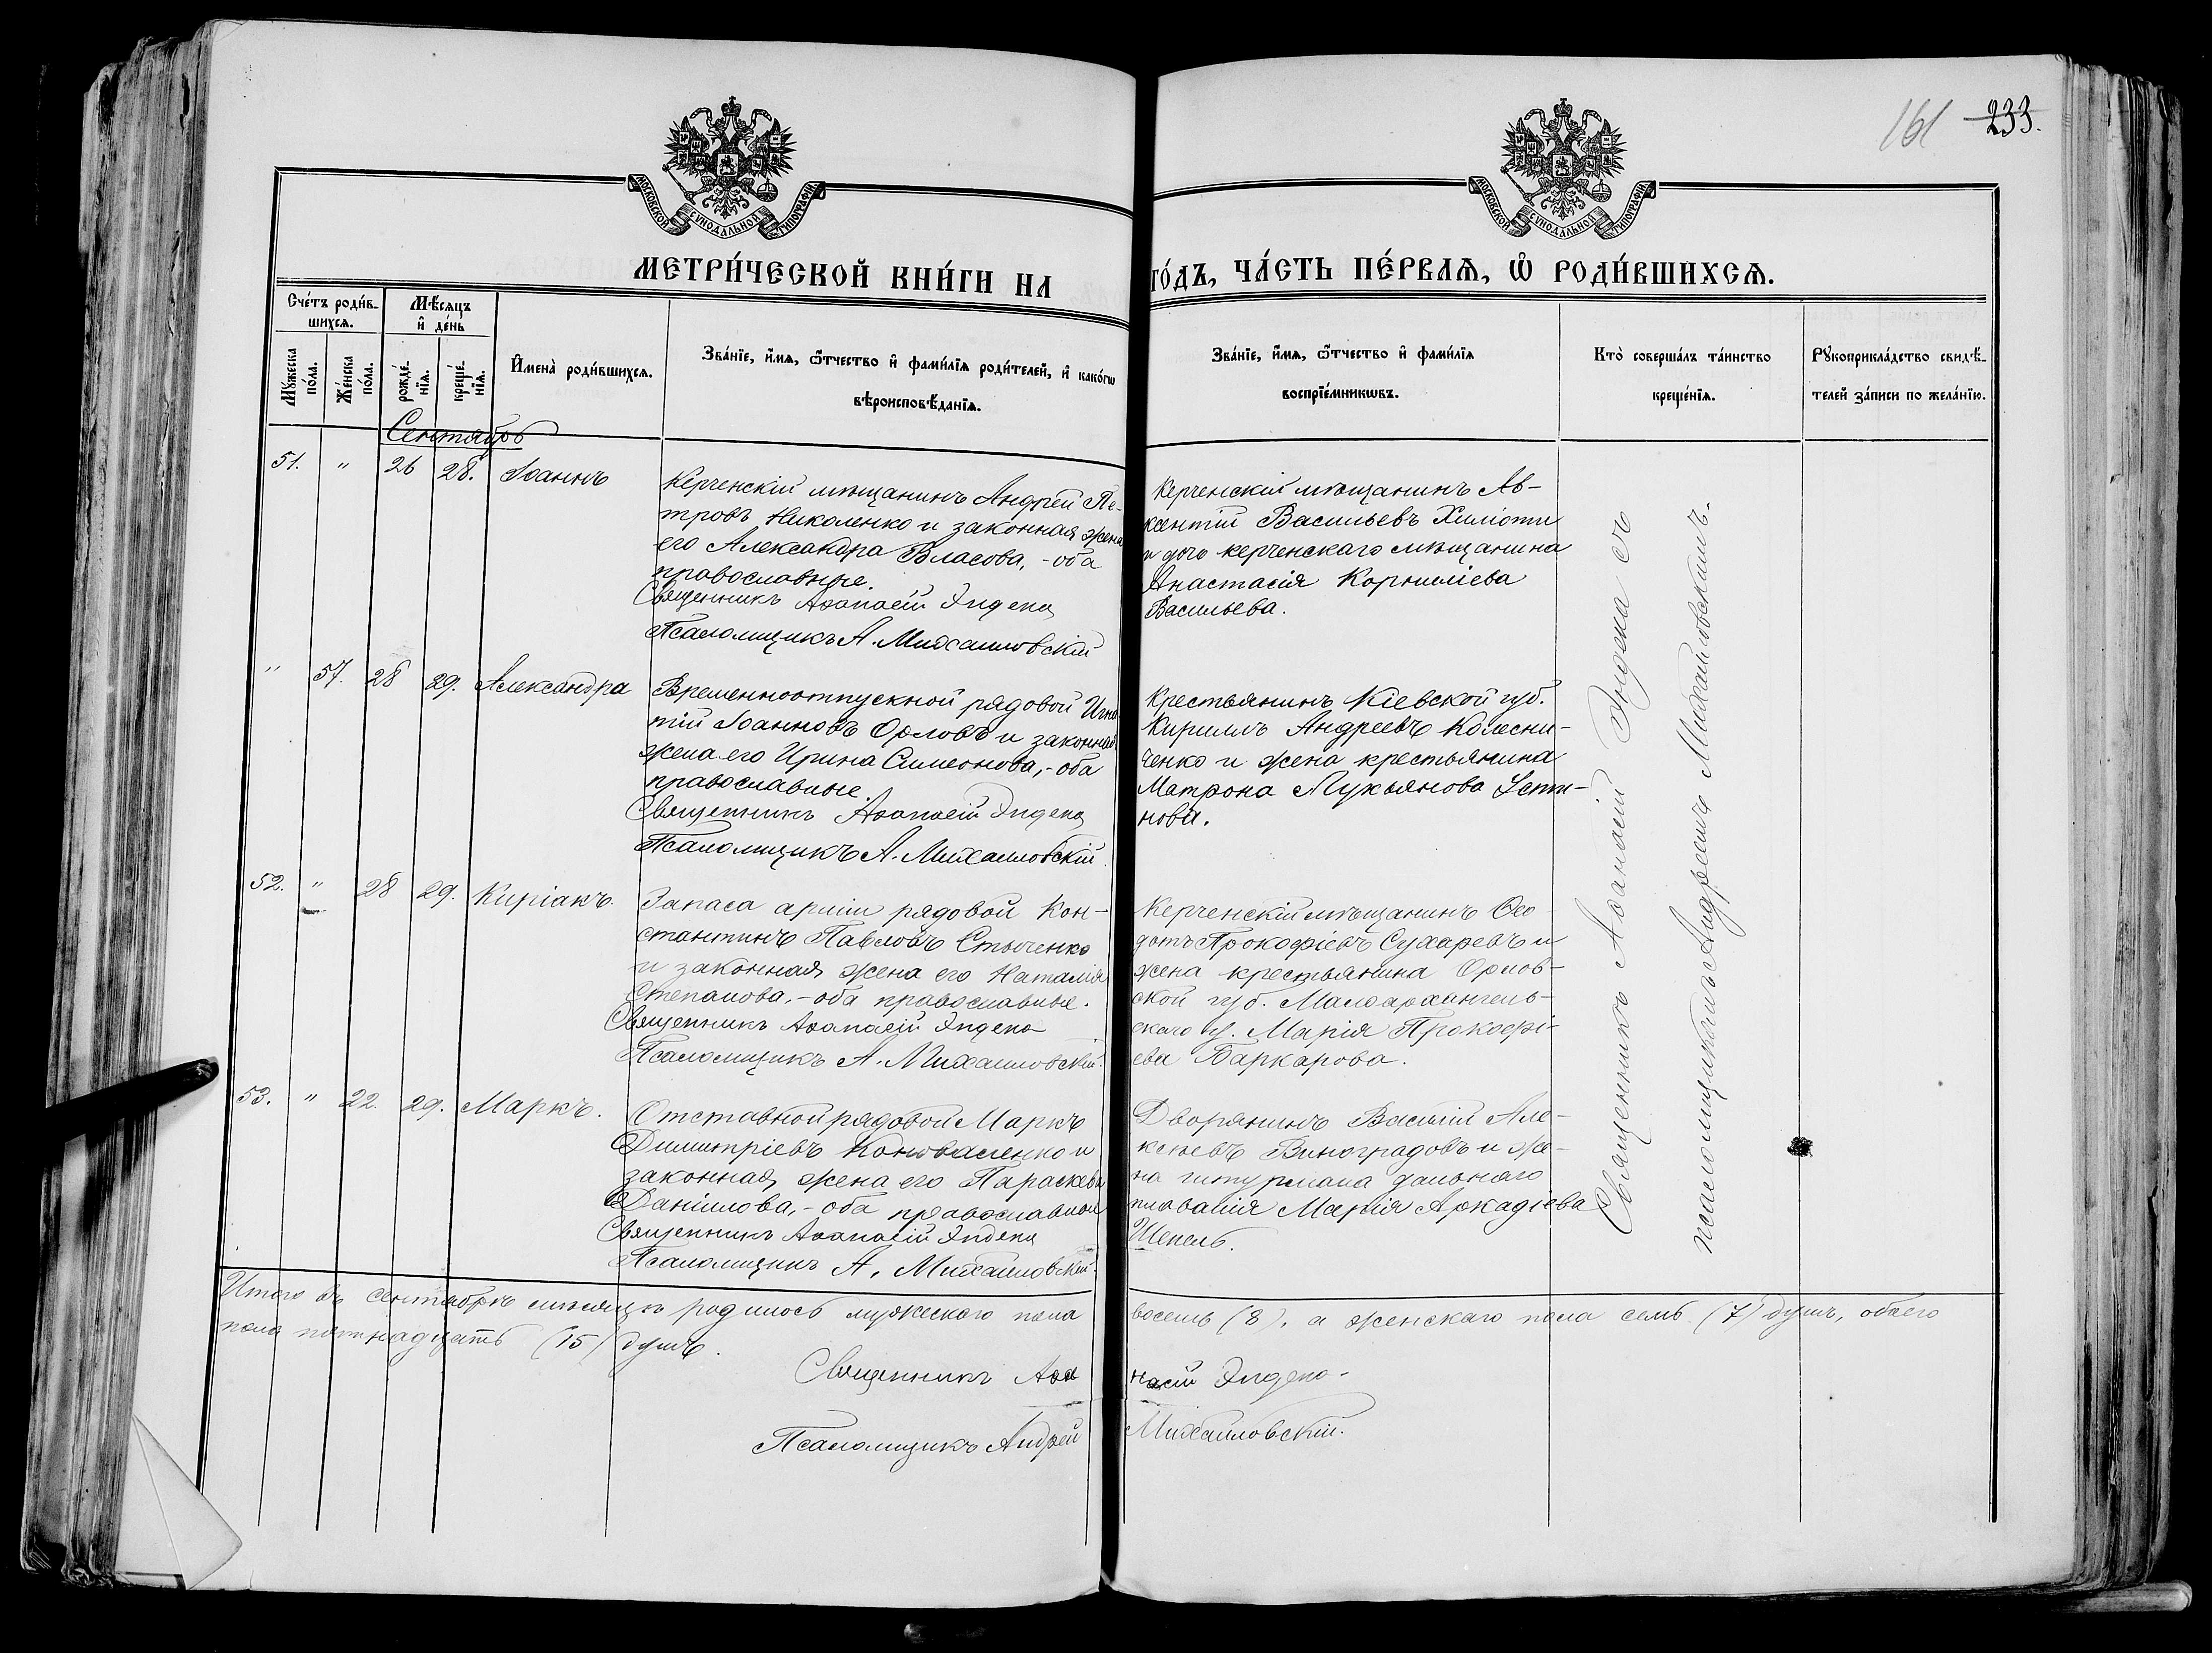 161 233.
МОСКОВСКОЙ СѴНОДАЛЬНОЙ ТИПОГРАФІИ
МОСКОВСКОЙ СѴНОДАЛЬНОЙ ТИПОГРАФІИ
МЕТРИ́ЧЕСКОЙ КНИ́ГИ НА ГО́ДЪ, ЧА́СТЬ ПЕ́РВАѦ, Ѽ РОДИ́ВШИХСѦ.
Сче́тъ роди́в-
шихсѧ.
Мѣ́сѧцъ
и҆ де́нь
Мꙋ́жеска
по́ла.
Же́нска
по́ла.
рожде́-
нїѧ.
креще́-
нїѧ.
И҆мена̀ роди́вшихсѧ.
Зва́нїе, и҆́мѧ, ѻ҆́тчество и҆ фами́лїѧ роди́телей, и҆ како́гѡ
вѣроисповѣ́данїѧ.
Зва́нїе, и҆́мѧ, ѻ҆́тчество и҆ фами́лїѧ
воспрїе́мникѡвъ.
Кто̀ соверша́лъ та́инство
креще́нїѧ.
Рꙋкоприкла́дство свидѣ́-
телей за́писи по жела́нїю.
Сентябрь
51. " 26 28. Іоаннъ
Керченскій мѣщанинъ Андрей Пе-
тровъ Николенко и законная жена
его Александра Власова, - оба
православные.
Священникъ Аѳанасій Эндека
Псаломщикъ А. Михайловскій
Керченскій мѣщанинъ Ав-
ксентій Васильевъ Хиліоти
и дочь керченскаго мѣщанина
Анастасія Корниліева
Васильева.
" 57. 28 29. Александра
Временноотпускной рядовой Игна
тій Іоанновъ Орловъ и законная
жена его Ирина Симеонова, - оба
православные.
Священникъ Аѳанасій Эндека
Псаломщикъ А. Михайловскій.
Крестьянинъ Кіевской губ.
Кириллъ Андреевъ Колесни-
ченко и жена крестьянина
Матрона Лукьянова Усти-
нова.
52. " 28 29. Киріакъ.
Запаса арміи рядовой Кон-
стантинъ Павловъ Стыченко
и законная жена его Наталія
Степанова, - оба православные.
Священникъ Аѳанасій Эндека
Псаломщикъ А. Михайловскій.
Керченскій мѣщанинъ Ѳео
дотъ Прокофіевъ Сухаревъ и
жена крестьянина Орлов-
ской губ. Малоархангель-
скаго у. Марія Прокофі-
ева Баркарова.
53. " 22. 29. Маркъ.
Отставной рядовой Маркъ
Димитріевъ Коноваленко и
законная жена его Параскева
Даніилова, - оба православные
Священникъ Аѳанасій Эндека
Псаломщикъ А. Михайловскій.
Дворянинъ Василій Але-
ксѣевъ Виноградовъ и же-
на штурмана дальняго
плаванія Марія Аркадіева
Шепель.
Священникъ Аѳанасій Эндека съ
псаломщикомъ Андреемъ Михайловскимъ.
Итого въ сентябрѣ мѣсяцѣ родилось мужескаго пола восемь (8), а женскаго пола семь (7) душъ, обоего
пола пятнадцать (15) душъ.
Священникъ Аѳанасій Эндека
Псаломщикъ Андрей Михайловскій.